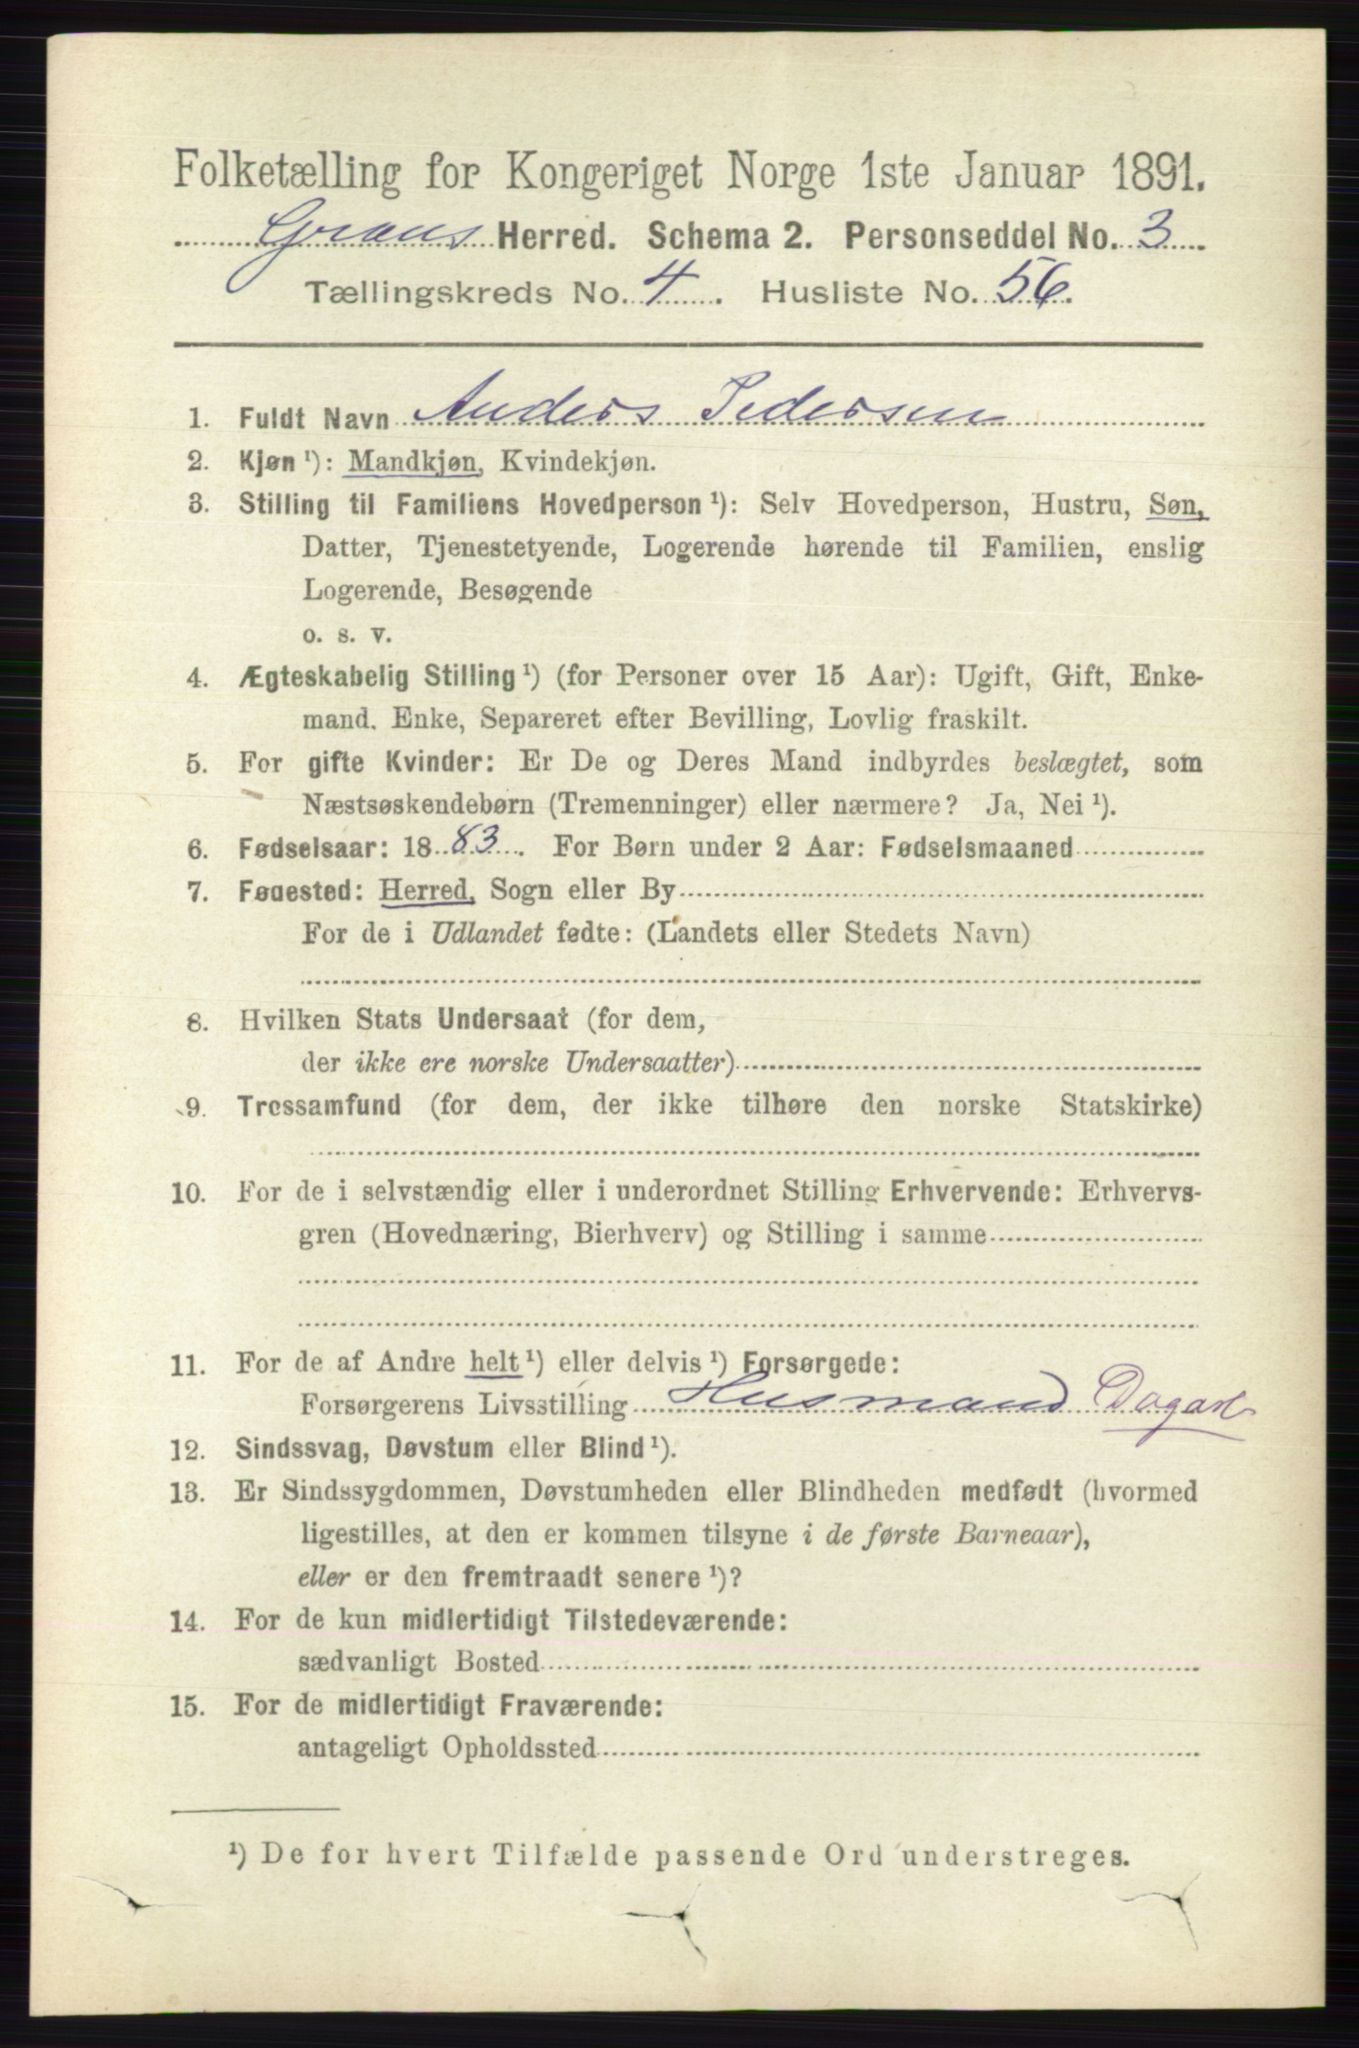 Folketælling for Kongeriget Norge 1ste Januar 1891.
Grans Herred. Schema 2. Personseddel No. 3
Tællingskreds No. 4. Husliste No. 56.
1. Fuldt Navn Anders Pedersen
2. Kjøn ¹): Mandkjøn, Kvindekjøn.
3. Stilling til Familiens Hovedperson ¹): Selv Hovedperson, Hustru, Søn,
Datter, Tjenestetyende, Logerende hørende til Familien, enslig
Logerende, Besøgende
o. s. v.
4. Ægteskabelig Stilling ¹) (for Personer over 15 Aar): Ugift, Gift, Enke-
mand, Enke, Separeret efter Bevilling, Lovlig fraskilt.
5. For gifte Kvinder: Er De og Deres Mand indbyrdes beslægtet, som
Næstsøskendebørn (Tremenninger) eller nærmere? Ja, Nei ¹).
6. Fødselsaar: 1883. For Børn under 2 Aar: Fødselsmaaned
7. Fødested: Herred, Sogn eller By
For de i Udlandet fødte: (Landets eller Stedets Navn)
8. Hvilken Stats Undersaat (for dem,
der ikke ere norske Undersaatter)
9. Trossamfund (for dem, der ikke tilhøre den norske Statskirke)
10. For de i selvstændig eller i underordnet Stilling Erhvervende: Erhvervs-
gren (Hovednæring, Bierhverv) og Stilling i samme
11. For de af Andre helt ¹) eller delvis ¹) Forsørgede:
Forsørgerens Livsstilling Husmand Dagarb
12. Sindssvag, Døvstum eller Blind ¹).
13. Er Sindssygdommen, Døvstumheden eller Blindheden medfødt (hvormed
ligestilles, at den er kommen tilsyne i de første Barneaar),
eller er den fremtraadt senere ¹)?
14. For de kun midlertidigt Tilstedeværende:
sædvanligt Bosted
15. For de midlertidigt Fraværende:
antageligt Opholdssted
¹) De for hvert Tilfælde passende Ord understreges.